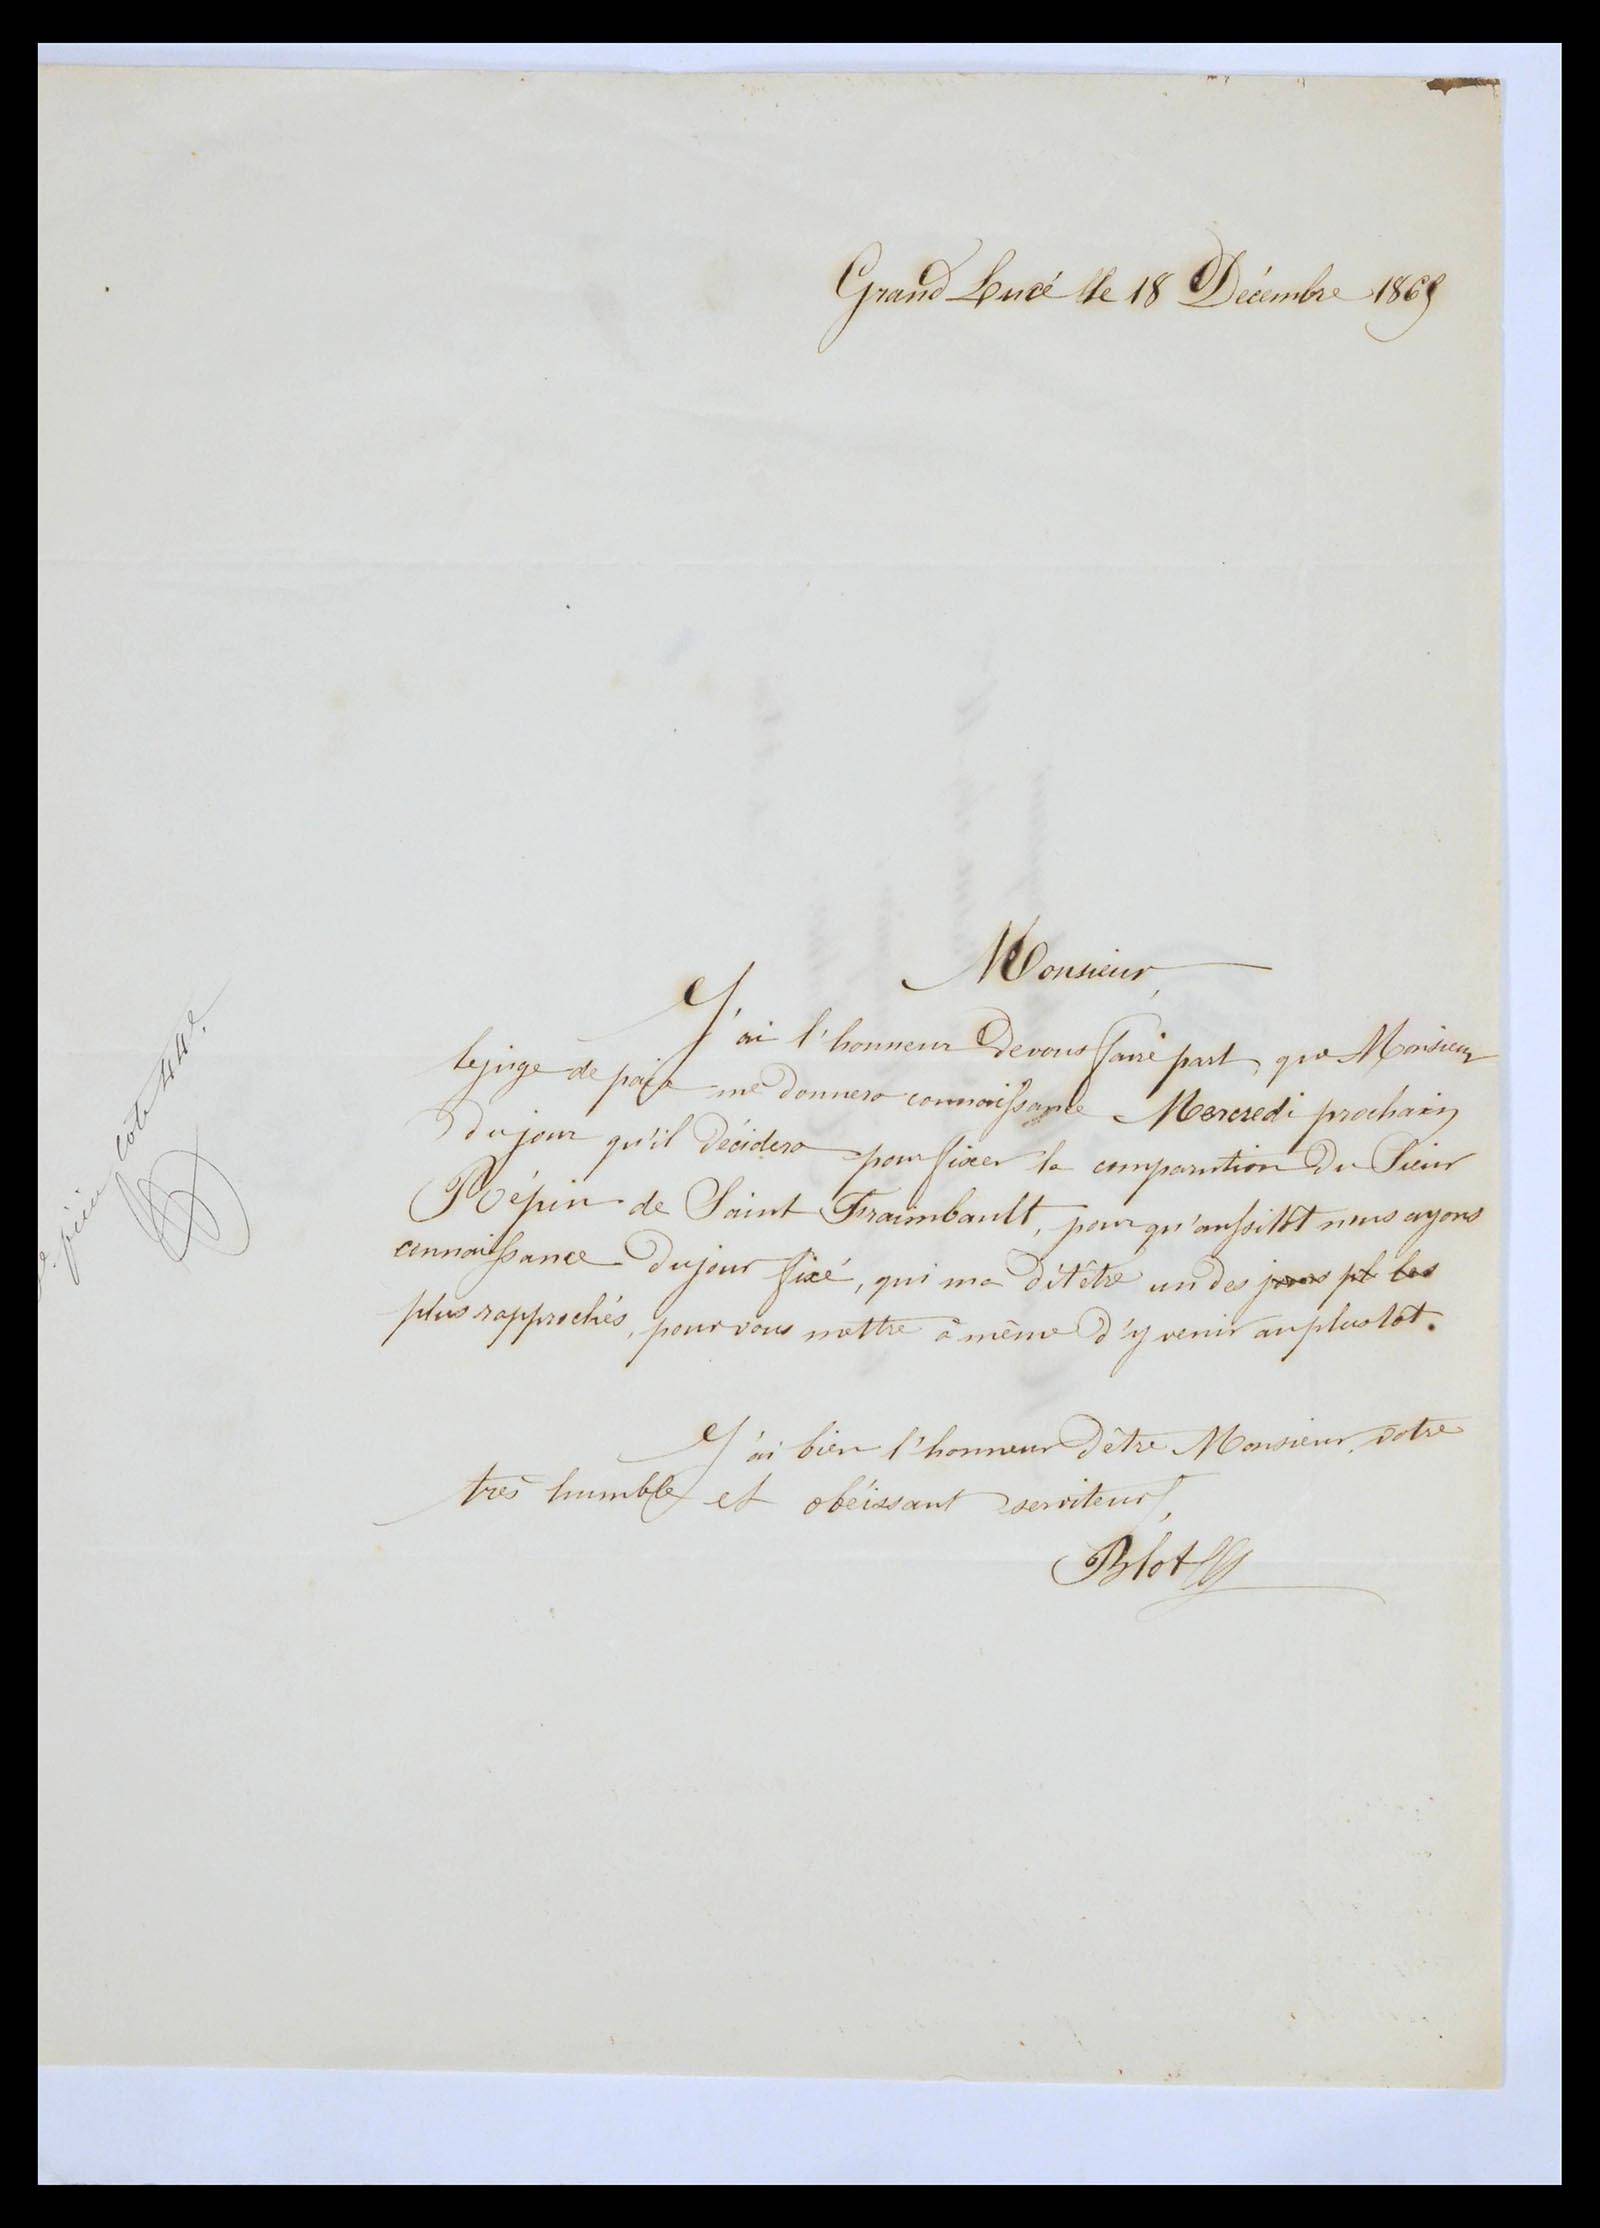 Grand Lucé le 18 Décembre 1869
Monsieur,
J'ai l'honneur de vous faire part, que Monsieur
le juge de paix me donnera connaissance Mercredi prochain
du jour qu'il décidera pour fixer la comparution du Sieur
Pépin de Saint Fraimbault, pour qu'aussitôt nous ayons
connaissance du jour fixé, qui ma dit être un des jours pl les
plus rapprochés, pour vous mettre à même d'y venir au plustôt.
J'ai bien l'honneur d'être Monsieur, votre
très humble et obéissant serviteur,
Blot
pièce cote 44e.